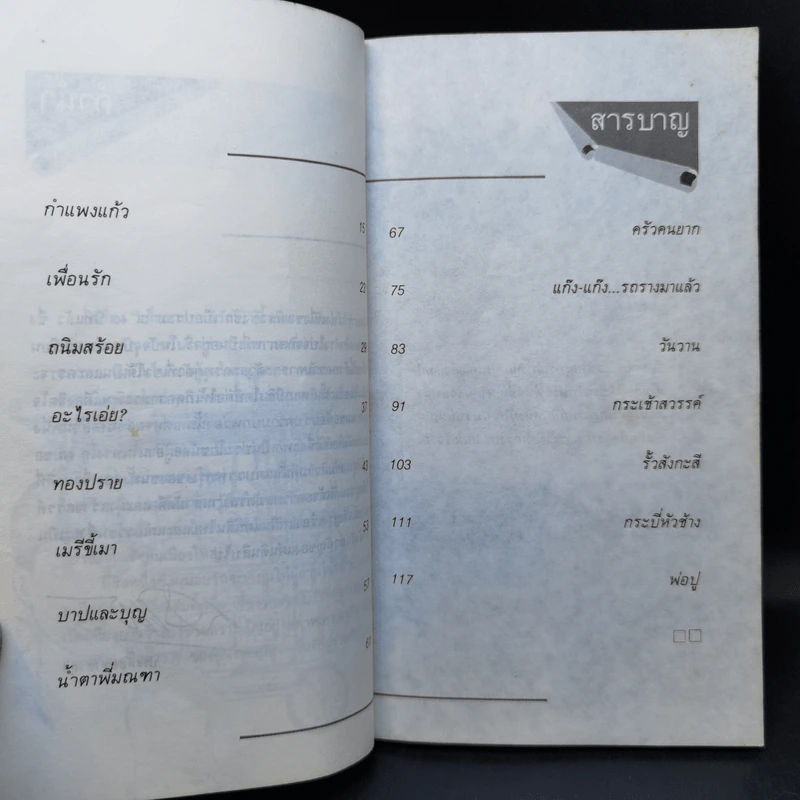 กำแพงแก้ว 15
เพื่อนรัก 23
ถนิมสร้อย 29
อะไรเอ่ย? 37
ทองปราย 43
เมรีขี้เมา 53
บาปและบุญ 57
น้ำตาพี่มณฑา
สารบาญ
67 ครัวคนยาก
75 แก๊ง-แก๊ง...รถรางมาแล้ว
83 วันวาน
91 กระเช้าสวรรค์
103 รั้วสังกะสี
111 กระบี่หัวช้าง
117 พ่อปู